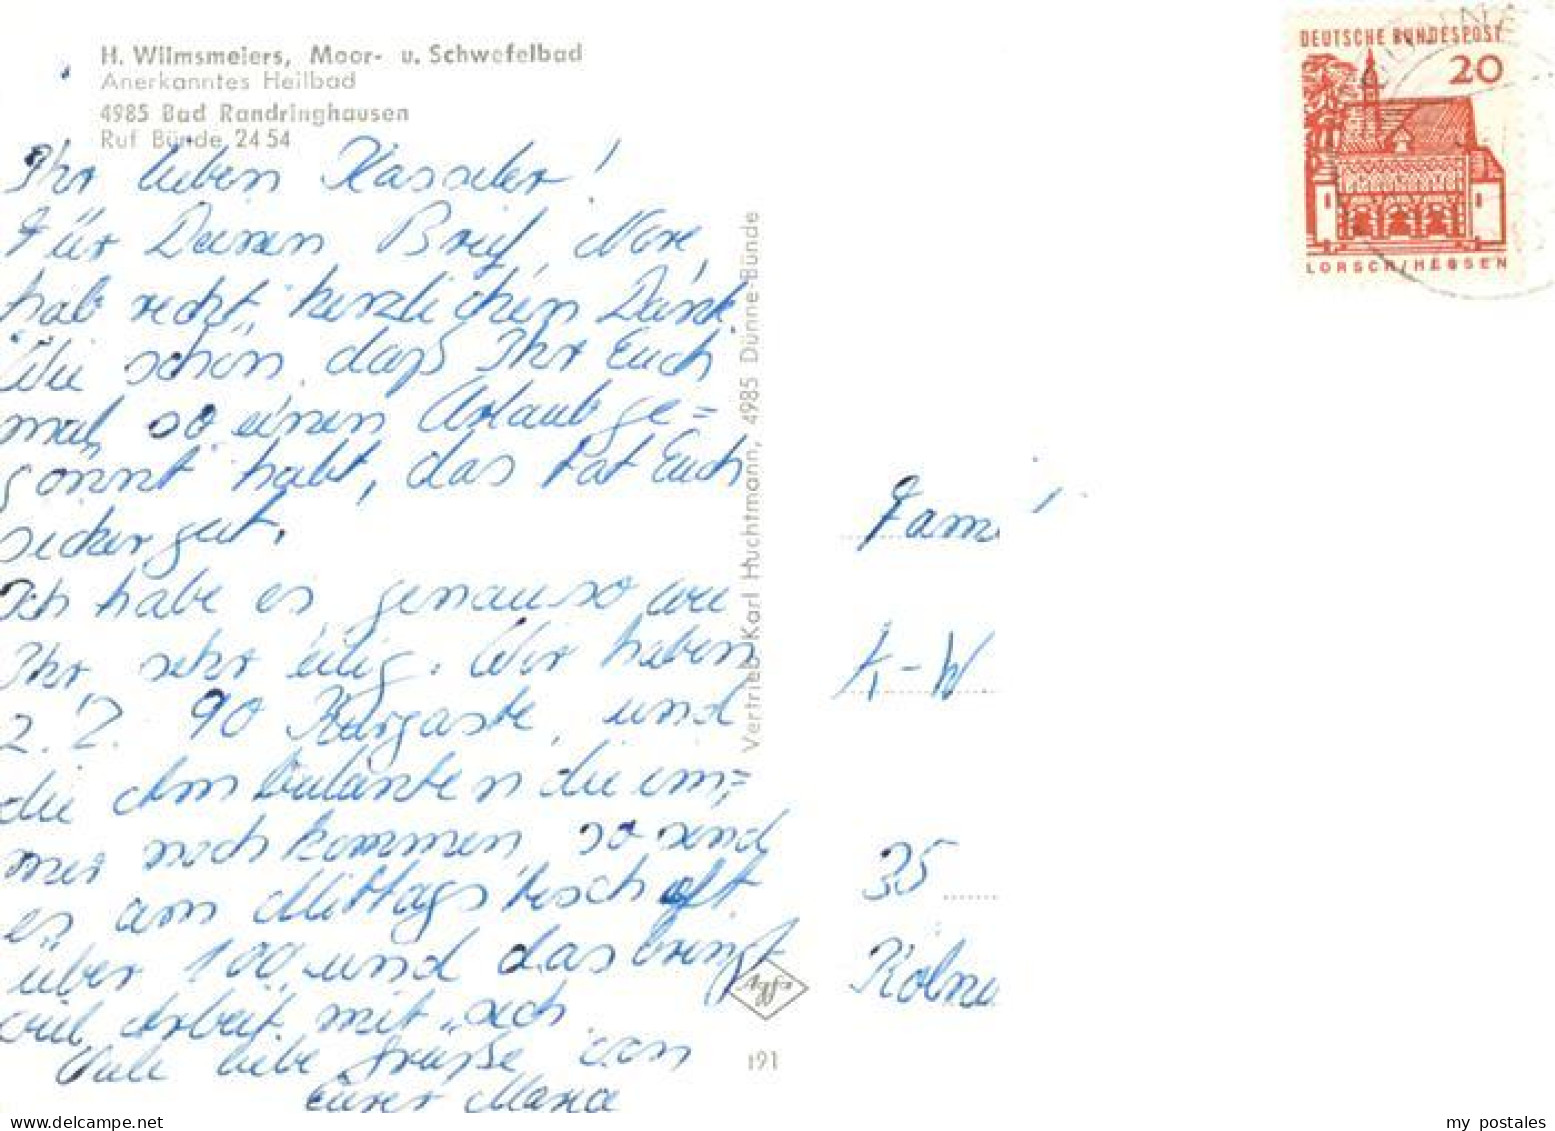 H. Wilmsmeiers, Moor- u. Schwefelbad
Anerkanntes Heilbad
4985 Bad Randringhausen
Ruf Bünde 24 54
Ihr lieben Kasseler!
Für Deinen Brief, More,
hab recht herzlichen Dank.
Wie schön, daß Ihr Euch
mal so einen Urlaub ge=
gönnt habt, das tat Euch
sicher gut.
Ich habe es genauso wie
Ihr sehr eilig. Wir haben
z. Z. 90 Kurgäste, und
die Ambulanten die im=
mer noch kommen, so sind
es am Mittagstisch oft
über 100 und das bringt
viel Arbeit mit sich.
Viele liebe Grüße von
Eurer Maria
Vertrieb Karl Huchtmann, 4985 Dünne-Bünde
Agfa
191
DEUTSCHE BUNDESPOST
20
LORSCH/HESSEN
Fami
K-W
35
Kölni
my postales